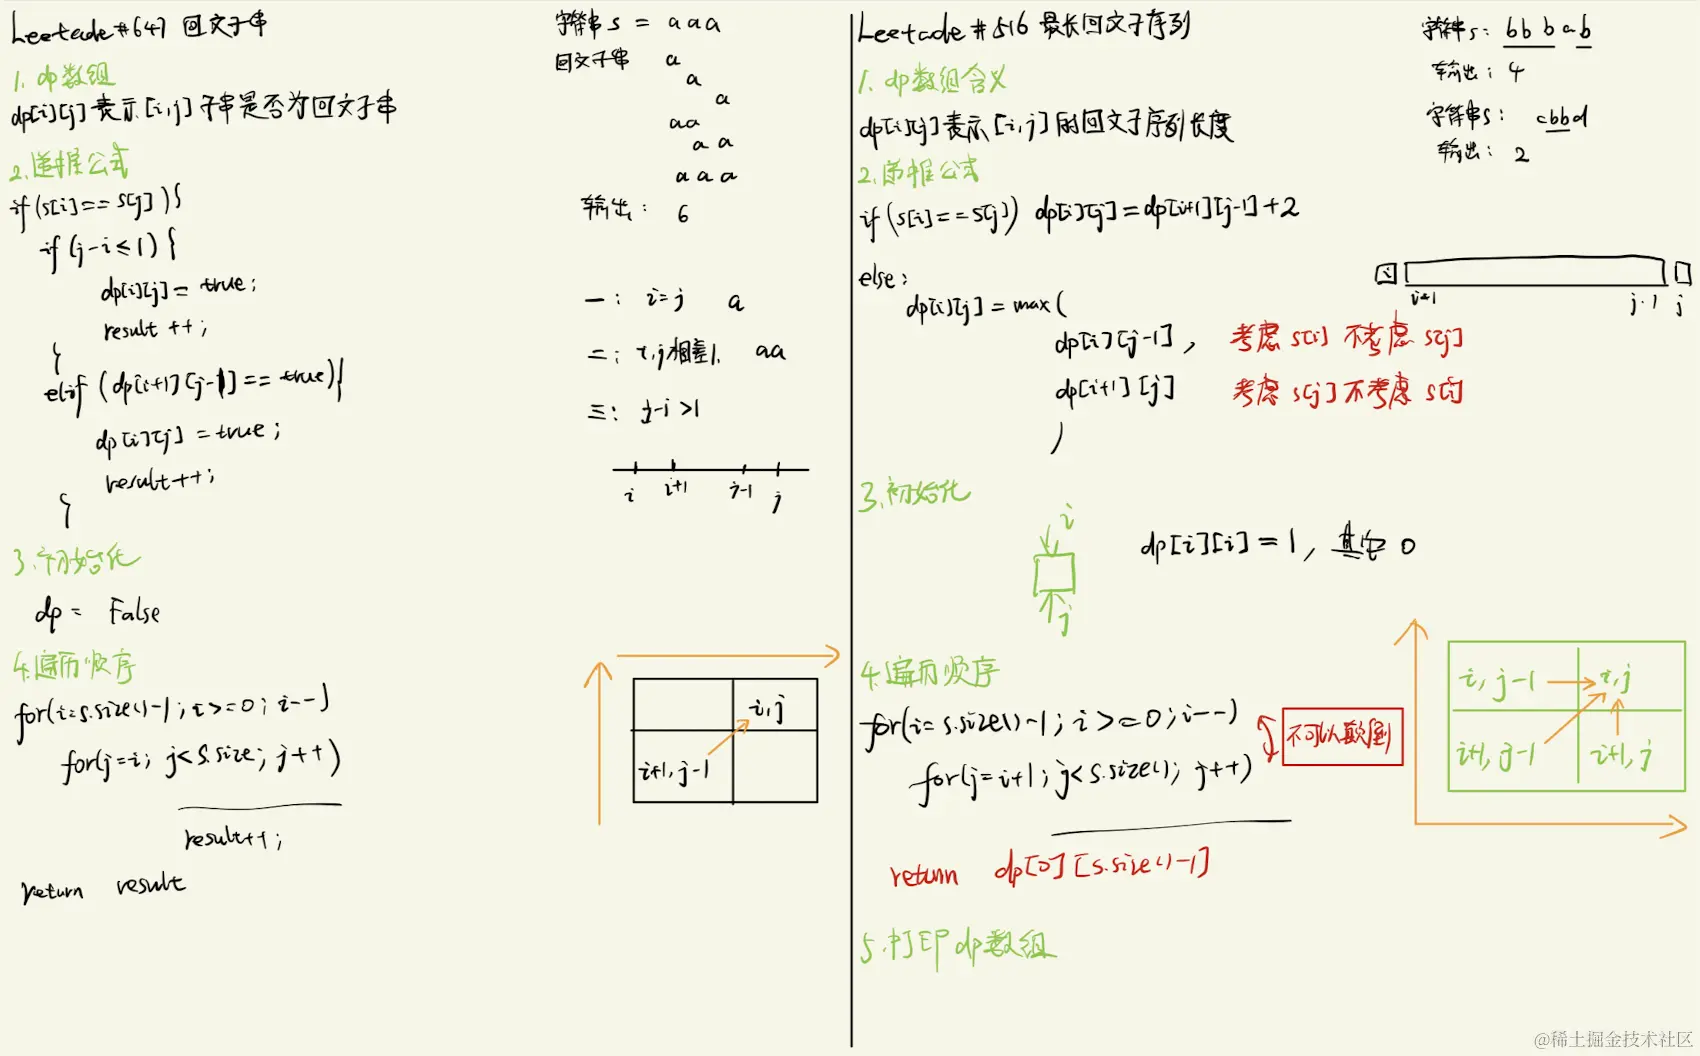 Leetcode #647 回文子串
1. dp数组
dp[i][j] 表示 [i,j] 子串是否为回文子串
2.递推公式
if(s[i]==s[j]){
if (j-i≤1) {
dp[i][j] = true;
result ++;
}
elif (dp[i+1][j-1] == true){
dp[i][j] = true;
result++;
}
3.初始化
dp = False
4.遍历顺序
for(i=s.size()-1; i>=0; i--)
for(j=i; j<s.size; j++)
result++;
return result
字符串 s = aaa
回文子串 a
a
a
aa
aa
aaa
输出: 6
一: i=j a
二: i,j相差1. aa
三: j-i>1
i i+1 j-1 j
i,j
i+1,j-1
Leetcode #516 最长回文子序列
1. dp数组含义
dp[i][j]表示[i,j]的回文子序列长度
2.递推公式
if(s[i]==s[j]) dp[i][j]=dp[i+1][j-1]+2
else:
dp[i][j] = max(
dp[i][j-1], 考虑 s[i] 不考虑 s[j]
dp[i+1][j] 考虑 s[j] 不考虑 s[i]
)
字符串s: bbbab
输出: 4
字符串s: cbbd
输出: 2
i i+1 j-1 j
3.初始化
i
j
dp[i][i] = 1, 其它 0
4.遍历顺序
for(i=s.size()-1; i>=0; i--)
for(j=i+1; j<s.size(); j++)
不可以颠倒
return dp[0][s.size()-1]
i,j-1 i,j
i+1,j-1 i+1,j
5.打印dp数组
@稀土掘金技术社区